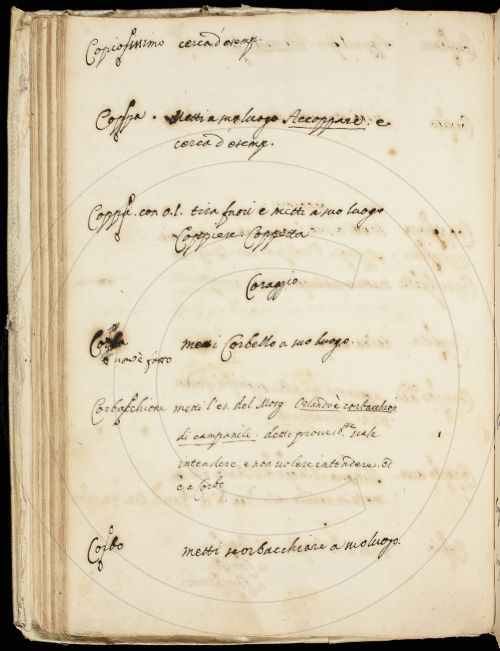 Copiosissimo cerca d'esemp.
Coppa. Metti a suo luogo Accoppare: e
cerca d'esemp.
Coppa. con o.l. tira fuori e metti a suo luogo
Coppiere. Coppetta
Coraggio
Corba metti Corbello a suo luogo.
non è fatto
Corbacchione metti l'es. del Morg. Orlando è corbacchion
di campanile. detti proverb.te vale
intendere, e non volere intendere. ed
è a Corbo
Corbo metti scorbacchiare a suo luogo.